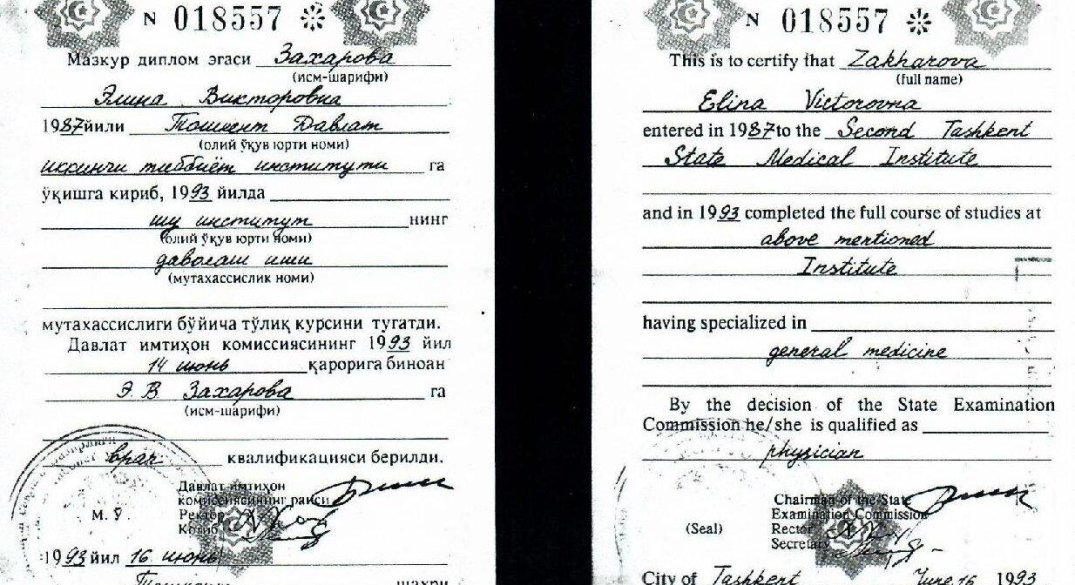 N 018557
Мазкур диплом эгаси Захарова
(исм-шарифи)
Элина Викторовна
1987 йили Тошкент Давлат
(олий ўқув юрти номи)
иккинчи теббиёт институти га
ўқишга кириб, 1993 йилда
шу институт нинг
(олий ўқув юрти номи)
даволаш иши
(мутахассислик номи)
мутахассислиги бўйича тўлиқ курсини тугатди.
Давлат имтиҳон комиссиясининг 1993 йил
14 июнь қарорига биноан
Э. В. Захарова га
(исм-шарифи)
врач квалификацияси берилди.
Давлат имтиҳон
комиссиясининг раиси
М. Ў. Ректор
Котиб
1993 йил 16 июнь
шаҳри
N 018557
This is to certify that Zakharova
(full name)
Elina Victorovna
entered in 1987 to the Second Tashkent
State Medical Institute
and in 1993 completed the full course of studies at
above mertioned
Institute
having specialized in
general medicine
By the decision of the State Examination
Commission he/she is qualified as
physician
Chairman of the State
Examination Commission
(Seal) Rector
Secretary
City of Tashkent June 16 1993